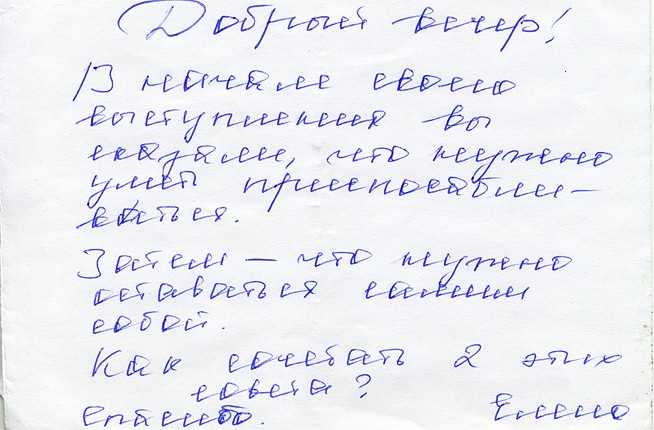 Добрый вечер!
В начале своего
выступления вы
сказали, что нужно
уметь приспосабли-
ваться.
Затем — что нужно
оставаться самим
собой.
Как сочетать 2 этих
совета?
Спасибо. Елена